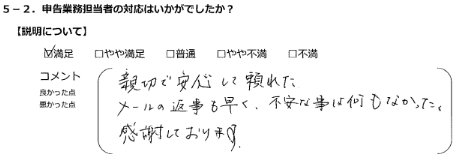 5－2．申告業務担当者の対応はいかがでしたか？
【説明について】
☑満足 □やや満足 □普通 □やや不満 □不満
コメント
良かった点
悪かった点
親切で安心して頼れた
メールの返事も早く、不安な事は何もなかった。
感謝しております。